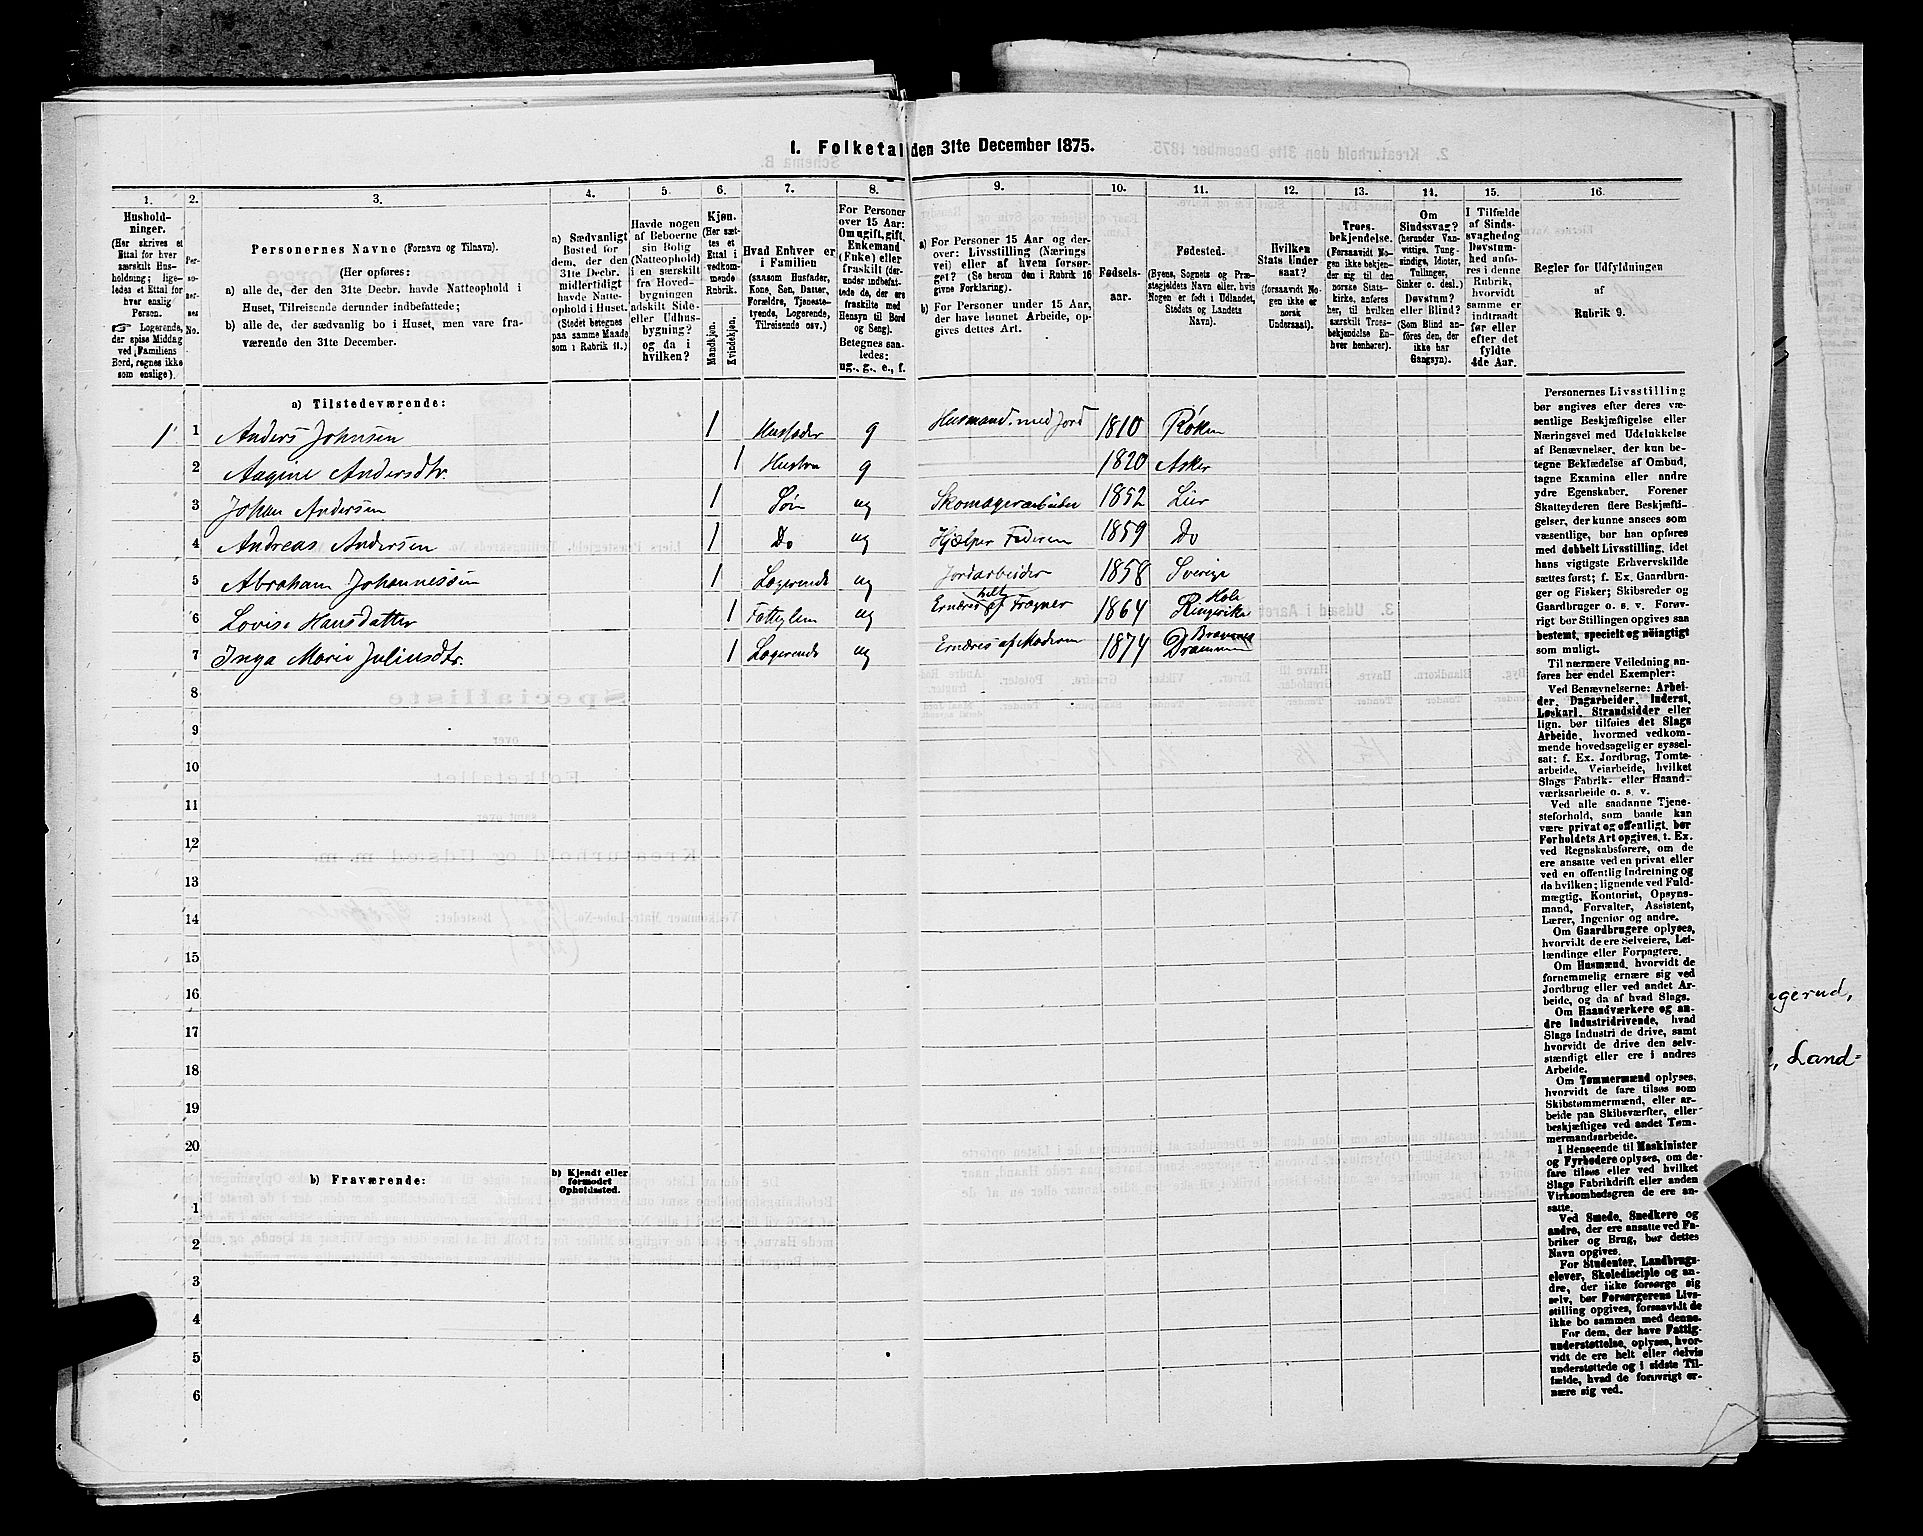 I. Folketal den 31te December 1875.
1.
Hushold-
ninger.
(Her skrives et
Ettal for hver
særskilt Hus-
holdning; lige-
ledes et Ettal for
hver enslig
Person.
☞ Logerende,
der spise Middag
ved Familiens
Bord, regnes ikke
som enslige).
2.
Per-
so-
ner-
nes
No.
3.
Personernes Navne (Fornavn og Tilnavn).
(Her opføres:
a) alle de, der den 31te Decbr. havde Natteophold i
Huset, Tilreisende derunder indbefattede;
b) alle de, der sædvanlig bo i Huset, men vare fra-
værende den 31te December.
4.
a) Sædvanligt
Bosted for
dem, der den
31te Decbr.
midlertidigt
havde Natte-
ophold i Huset.
(Stedet betegnes
paa samme Maade
som i Rubrik 11.)
5.
Havde nogen
af Beboerne
sin Bolig
(Natteophold)
i en særskilt
fra Hoved-
bygningen
adskilt Side-
eller Udhus-
bygning?
og da i
hvilken?
6.
Kjøn.
(Her sæt-
tes et
Ettal i
vedkom-
mende
Rubrik.
Mandkjøn.
Kvindekjøn.
7.
Hvad Enhver er
i Familien
(saasom Husfader,
Kone, Søn, Datter,
Forældre, Tjeneste-
tyende, Logerende,
Tilreisende osv.)
8.
For Personer
over 15 Aar:
Om ugift, gift,
Enkemand
(Enke) eller
fraskilt (der-
under indbefat-
tede de, der ere
fraskilte med
Hensyn til Bord
og Seng).
Betegnes saa-
ledes:
ug., g., e., f.
9.
a) For Personer 15 Aar og der-
over: Livsstilling (Nærings
vei) eller af hvem forsør-
get? (Se herom den i Rubrik 16
givne Forklaring).
b) For Personer under 15 Aar,
der have lønnet Arbeide, op-
gives dettes Art.
10.
Fødsels-
aar.
11.
Fødested.
(Byens, Sognets og Præ-
stegjeldets Navn eller, hvis
Nogen er født i Udlandet,
Stedets og Landets
Navn).
12.
Hvilken
Stats Under
saat?
(forsaavidt No-
gen ikke er
norsk
Undersaat).
13.
Troes-
bekjendelse.
(Forsaavidt No-
gen ikke bekjen-
der sig til den
norske Stats-
kirke, anføres
her, til hvilken
særskilt Troes-
bekjendelse En-
hver henhører).
14.
Om
Sindssvag?
(herunder Van-
vittige, Tung-
sindige, Idioter,
Tullinger,
Sinker o. desl.)
Døvstum?
eller Blind?
(Som Blind an-
føres den, der
ikke har
Gangsyn).
15.
I Tilfælde
af Sinds-
svaghed og
Døvstum-
hed anfø-
res i denne
Rubrik,
hvorvidt
samme er
indtraadt
før eller
efter det
fyldte
4de Aar.
16.
Regler for Udfyldningen
af
Rubrik 9.
a) Tilstedeværende:
1 1 Anders Johnsen 1 Husfader g Husmand med Jord 1810 Røken
2 Aagine Andersdtr. 1 Hustru g 1820 Asker
3 Johan Andersen 1 Søn ug Skomagerarbeider 1852 Lier
4 Andreas Andersen 1 Do ug Hjælper Faderen 1859 Do
5 Abraham Johannessen 1 Logerende ug Jordarbeider 1858 Sverige
6 Lovise Hansdatter 1 Fattiglem ug Ernæres helt af Fragner 1864 Hole Ringerike
7 Inga Marie Juliusdtr. 1 Logerende ug Ernæres af Moderen 1874 Bragernes Drammen
8
9
10
11
12
13
14
15
16
17
18
19
20
b) Fraværende:
b) Kjendt eller
formodet
Opholdssted.
1
2
3
4
5
6
Personernes Livsstilling
bør angives efter deres væ-
sentlige Beskjæftigelse eller
Næringsvei med Udelukkelse
af Benævnelser, der kun be-
tegne Beklædelse af Ombud,
tagne Examina eller andre
ydre Egenskaber. Forener
Skatteyderen flere Beskjæfti-
gelser, der kunne ansees som
væsentlige, bør han opføres
med dobbelt Livsstilling, idet
hans vigtigste Erhvervskilde
sættes først; f. Ex. Gaardbru-
ger og Fisker; Skibsreder og
Gaardbruger o. s. v. Forøv-
rigt bør Stillingen opgives saa
bestemt, specielt og nøiagtigt
som muligt.
Til nærmere Veiledning an-
føres her endel Exempler:
Ved Benævnelserne: Arbei-
der, Dagarbeider, Inderst,
Løskarl, Strandsidder eller
lign. bør tilføies det Slags
Arbeide, hvormed vedkom-
mende hovedsagelig er syssel-
sat: f. Ex. Jordbrug, Tomte-
arbeide, Veiarbeide, hvilket
Slags Fabrik- eller Haand-
værksarbeide o. s. v.
Ved alle saadanne Tjene-
steforhold, som baade kan
være privat og offentligt, bør
Forholdets Art opgives, t. Ex.
ved Regnskabsførere, om de
ere ansatte ved en privat eller
ved en offentlig Indretning og
da hvilken; lignende ved Fuld-
mægtig, Kontorist, Opsyns-
mand, Forvalter, Assistent,
Lærer, Ingeniør og andre.
Om Gaardbrugere oplyses,
hvorvidt de ere Selveiere, Lei-
lændinge eller Forpagtere.
Om Husmænd, hvorvidt de
fornemmelig ernære sig ved
Jordbrug eller ved andet Ar-
beide, og da af hvad Slags.
Om Haandværkere og an-
dre Industridrivende, hvad
Slags Industri de drive, samt
hvorvidt de drive den selv-
stændigt eller ere i andres
Arbeide.
Om Tømmermænd oplyses,
hvorvidt de fare tilsøs som
Skibstømmermænd, eller ar-
beide paa Skibsværfter, eller
beskjæftiges ved andet Tøm-
mermandsarbeide.
I Henseende til Maskinister
og Fyrbødere oplyses, om de
fare tilsøs eller ved hvilket
Slags Fabrikdrift eller anden
Virksomhedsgren de ere an-
satte.
Ved Smede, Snedkere og
andre, der ere ansatte ved Fa-
briker og Brug, bør dettes
Navn opgives.
For Studenter, Landbrugs-
elever, Skoledisciple og an-
dre, der ikke forsørge sig
selv, bør Forsørgerens Livs-
stilling opgives, forsaavidt de
ikke bo sammen med denne.
For dem, der have Fattig-
understøttelse, oplyses, hvor-
vidt de ere helt eller delvis
understøttede og i sidste Til-
fælde, hvad de forøvrigt er-
nære sig ved.
gerud,
Land=